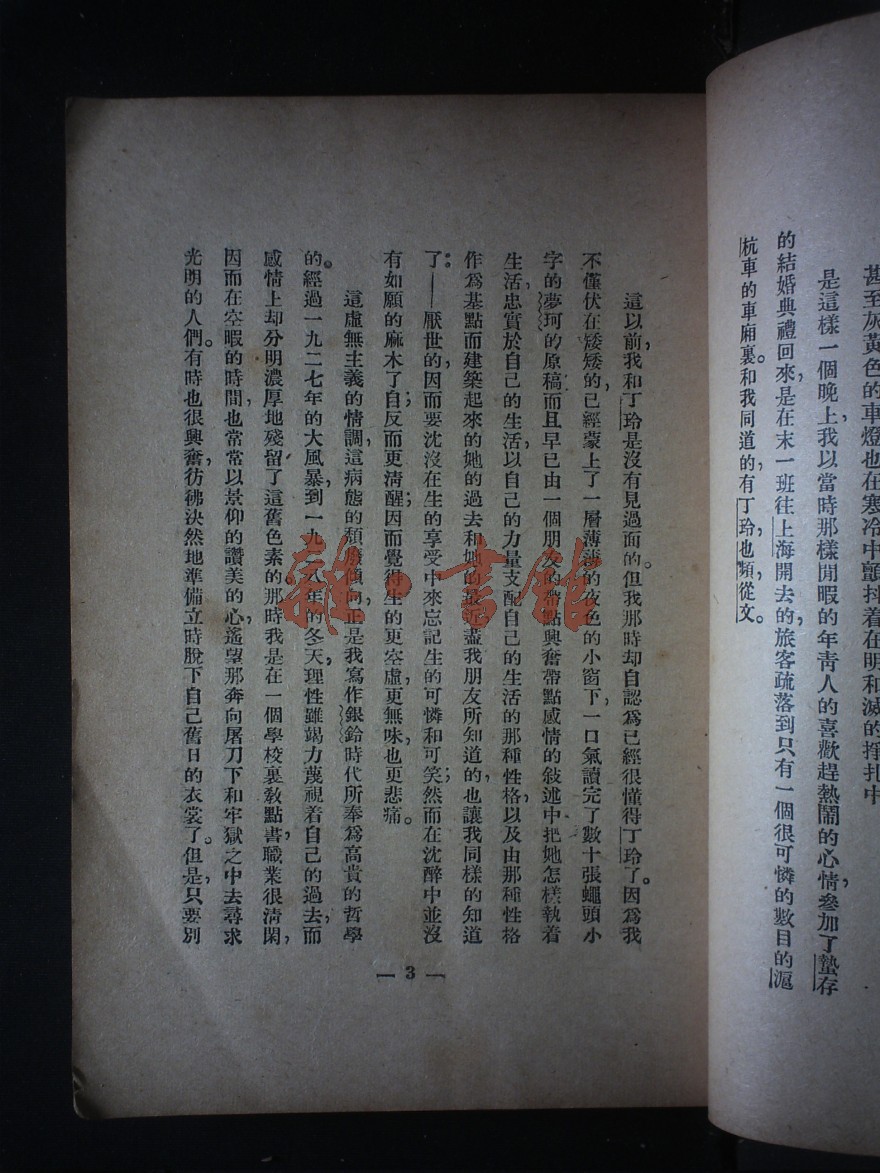 甚至灰黃色的車燈也在寒冷中顫抖着在明和滅的掙扎中
是這樣一個晚上,我以當時那樣閒暇的年靑人的喜歡趕熱鬧的心情,參加了蟄存
的結婚典禮回來,是在末一班往上海開去的,旅客疏落到只有一個很可憐的數目的滬
杭車的車廂裏。和我同道的,有丁玲,也頻,從文。
這以前,我和丁玲是沒有見過面的。但我那時却自認爲已經很懂得丁玲了。因爲我
不僅伏在矮矮的,已經蒙上了一層薄薄的夜色的小窗下,一口氣讀完了數十張蠅頭小
字的夢珂的原稿,而且早已由一個朋友的帶點興奮帶點感情的敍述中把她怎樣執着
生活,忠實於自己的生活,以自己的力量支配自己的生活的那種性格以及由那種性格
作爲基點而建築起來的她的過去和她的最近,盡我朋友所知道的,也讓我同樣的知道
了。——厭世的,因而要沈沒在生的享受中來忘記生的可憐和可笑;然而在沈醉中並沒
有如願的麻木了自己,反而更淸醒;因而覺得生的更空虛,更無味,也更悲痛。
這虛無主義的情調,這病態的頹廢傾向,正是我寫作銀鈴時代所奉爲高貴的哲學
的。經過一九二七年的大風暴,到一九二八年的冬天,理性雖竭力蔑視着自己的過去,而
感情上却分明濃厚地殘留了這舊色素的。那時我是在一個學校裏敎點書,職業很淸閑,
因而在空暇的時間,也常常以景仰的讚美的心,遙望那奔向屠刀下和牢獄之中去尋求
光明的人們。有時也很興奮,彷彿決然地準備立時脫下自己舊日的衣裳了。但是,只要別
— 3 —
雜·書館